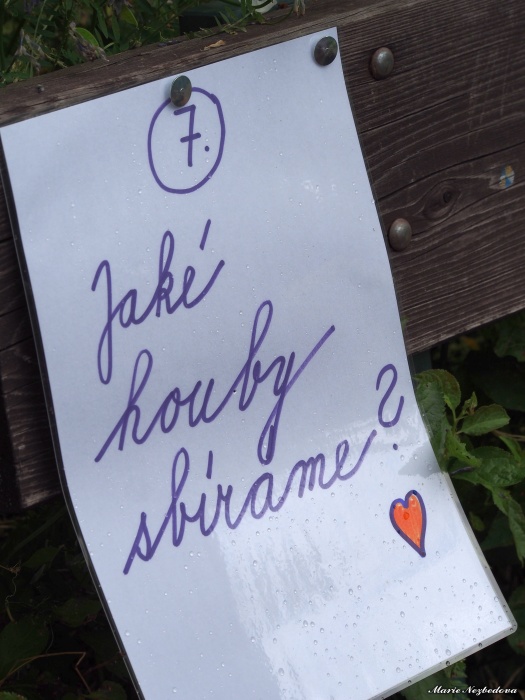 7.
Jaké
houby
sbírame?
Marie Nezbedova